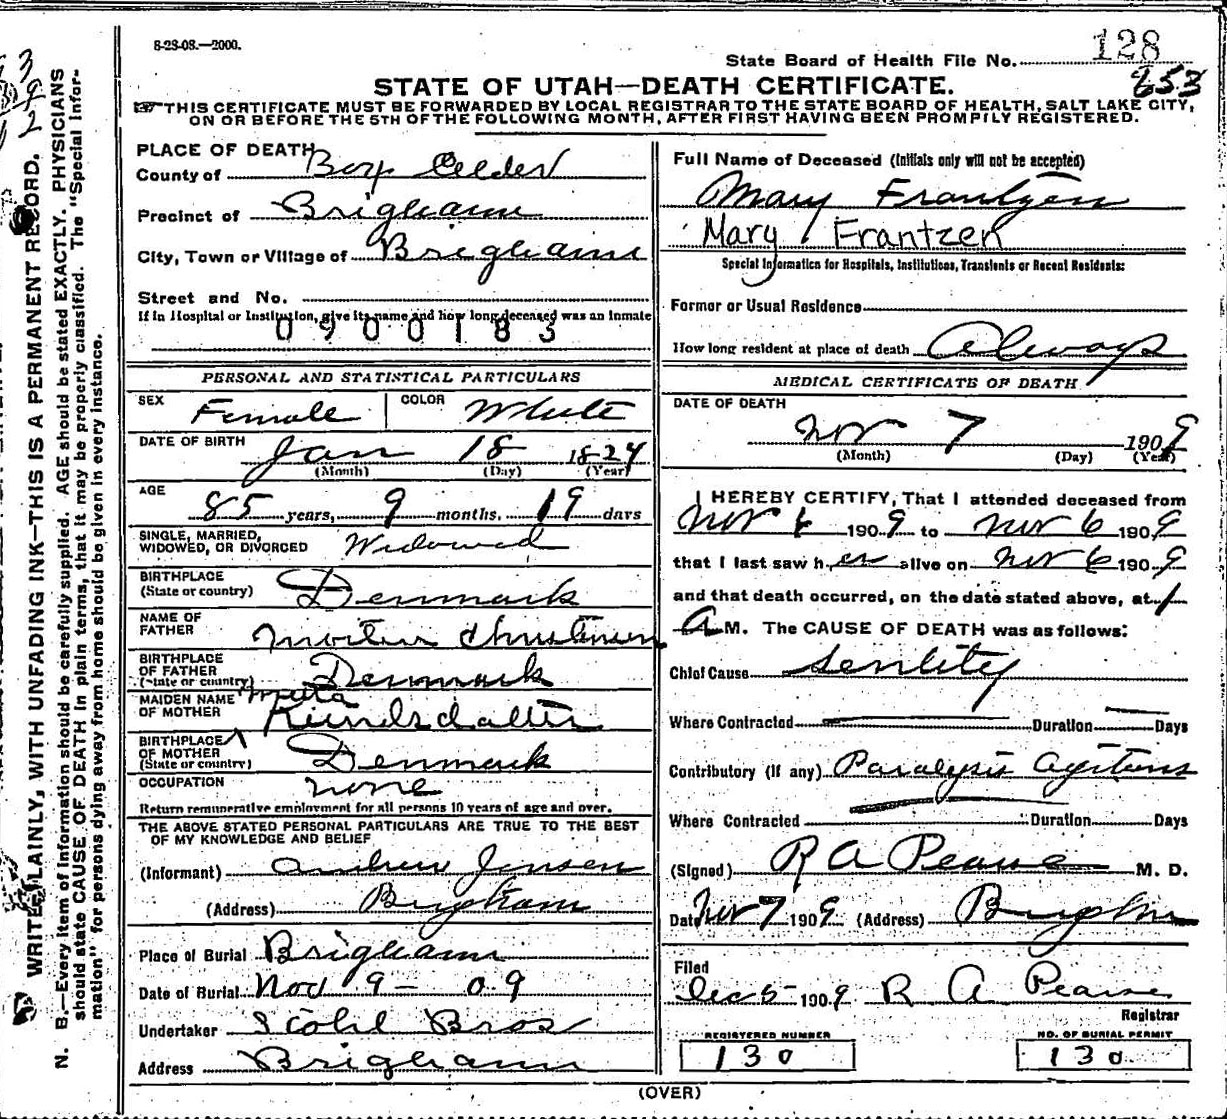 8-23-08.—2000.
State Board of Health File No. 128
253
STATE OF UTAH—DEATH CERTIFICATE.
THIS CERTIFICATE MUST BE FORWARDED BY LOCAL REGISTRAR TO THE STATE BOARD OF HEALTH, SALT LAKE CITY,
ON OR BEFORE THE 5TH OF THE FOLLOWING MONTH, AFTER FIRST HAVING BEEN PROMPILY REGISTERED.
WRITE PLAINLY, WITH UNFADING INK—THIS IS A PERMANENT RECORD.
N. B.—Every item of information should be carefully supplied. AGE should be stated EXACTLY. PHYSICIANS
should state CAUSE OF DEATH in plain terms, that it may be properly classified. The "Special Infor-
mation" for persons dying away from home should be given in every instance.
PLACE OF DEATH
County of Box Elder
Precinct of Brigham
City, Town or Village of Brigham
Street and No.
If in Hospital or Institution, give its name and how long deceased was an inmate
0900183
PERSONAL AND STATISTICAL PARTICULARS
SEX Female COLOR White
DATE OF BIRTH
Jan 18 1824
(Month) (Day) (Year)
AGE
85 years, 9 months, 19 days
SINGLE, MARRIED,
WIDOWED, OR DIVORCED Widowed
BIRTHPLACE
(State or country) Denmark
NAME OF
FATHER Morten Christensen
BIRTHPLACE
OF FATHER
(State or country) Denmark
MAIDEN NAME
OF MOTHER
BIRTHPLACE
OF MOTHER
(State or country) Denmark
OCCUPATION none
Return remunerative employment for all persons 10 years of age and over.
THE ABOVE STATED PERSONAL PARTICULARS ARE TRUE TO THE BEST
OF MY KNOWLEDGE AND BELIEF
(Informant) Andrew Jensen
(Address) Brigham
Place of Burial Brigham
Date of Burial Nov 9 - 09
Undertaker Stohl Bros
Address Brigham
Full Name of Deceased (Initials only will not be accepted)
Mary Frantzen
Mary Frantzen
Special Information for Hospitals, Institutions, Transients or Recent Residents:
Former or Usual Residence
How long resident at place of death Always
MEDICAL CERTIFICATE OF DEATH
DATE OF DEATH
Nov 7 1909
(Month) (Day) (Year)
I HEREBY CERTIFY, That I attended deceased from
Nov 6 1909 to Nov 6 1909
that I last saw her alive on Nov 6 1909
and that death occurred, on the date stated above, at 1
A M. The CAUSE OF DEATH was as follows:
Chief Cause Senility
Where Contracted Duration Days
Contributory (If any) Paralysis Agitans
Where Contracted Duration Days
(Signed) R A Pearse M. D.
Date Nov 7 1909 (Address) Brigham
Filed
Dec 5 1909 R A Pearse
Registrar
REGISTERED NUMBER
130
NO. OF BURIAL PERMIT
130
(OVER)